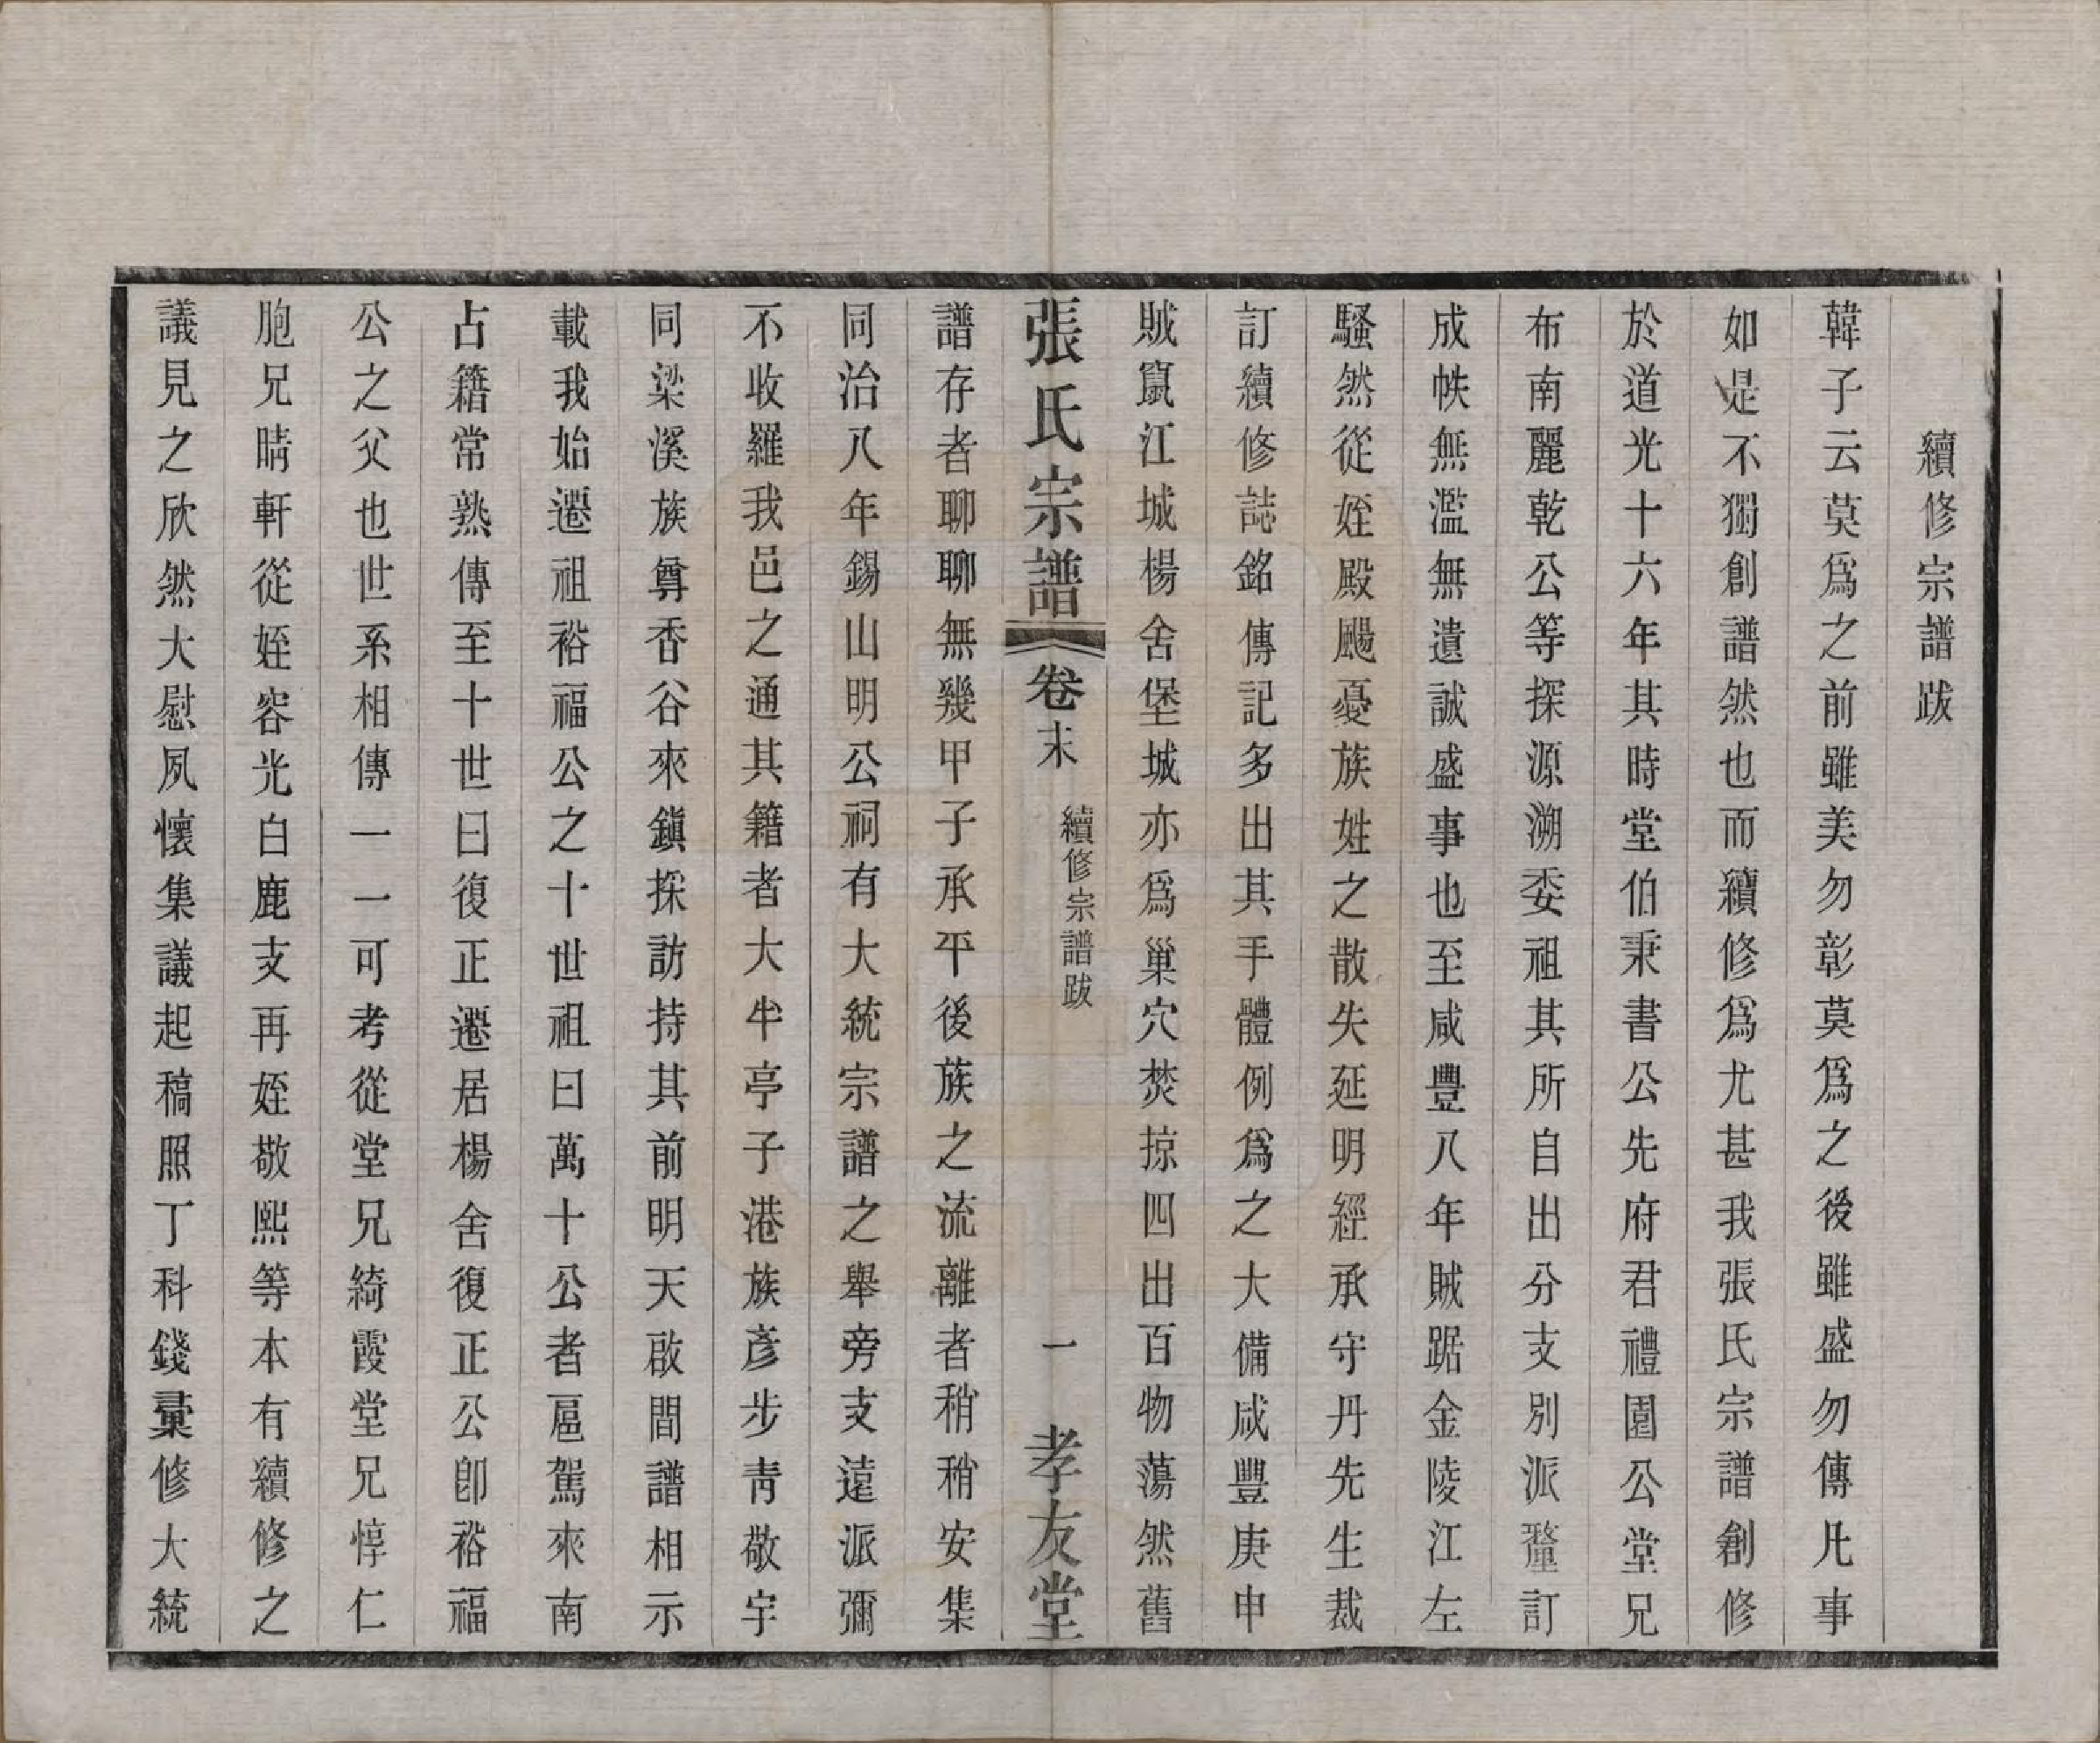 續修宗譜跋
韓子云莫爲之前雖美勿彰莫爲之後雖盛勿傳凡事
如是不獨創譜然也而續修爲尤甚我張氏宗譜創修
於道光十六年其時堂伯秉書公先府君禮園公堂兄
布南麗乾公等探源溯委祖其所自出分支別派釐訂
成帙無濫無遺誠盛事也至咸豐八年賊踞金陵江左
騷然從姪殿颺憂族姓之散失延明經承守丹先生裁
訂續修誌銘傳記多出其手體例爲之大備咸豐庚申
賊竄江城楊舍堡城亦爲巢穴焚掠四出百物蕩然舊
張氏宗譜 卷末 續修宗譜跋 一 孝友堂
譜存者聊聊無幾甲子承平後族之流離者稍稍安集
同治八年錫山明公祠有大統宗譜之舉旁支遠派彌
不收羅我邑之通其籍者大半亭子港族彥步靑敬宇
同梁溪族尊香谷來鎭探訪持其前明天啟間譜相示
載我始遷祖裕福公之十世祖曰萬十公者扈駕來南
占籍常熟傳至十世曰復正遷居楊舍復正公卽裕福
公之父也世系相傳一一可考從堂兄綺霞堂兄惇仁
胞兄晴軒從姪容光白鹿支再姪敬熙等本有續修之
議見之欣然大慰夙懷集議起稿照丁科錢彙修大統